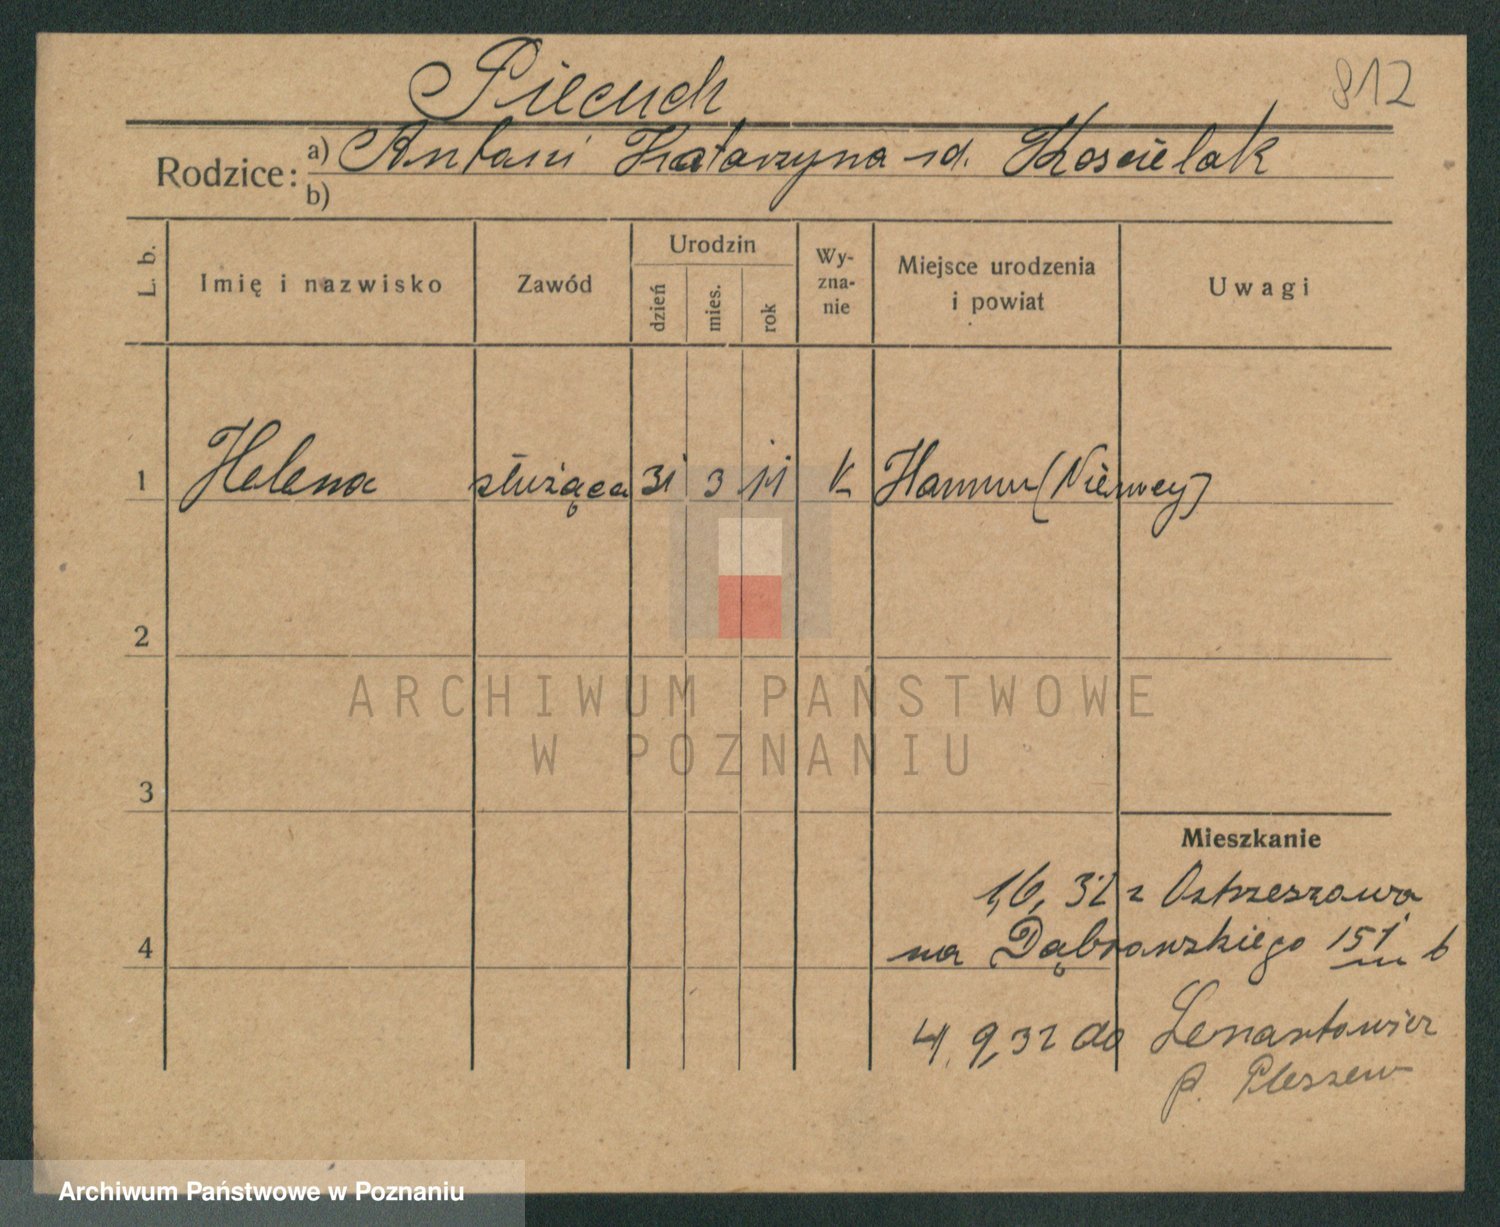 Piecuch
812
Rodzice: a) Antoni Katarzyna zd. Koscielak
b)
L. b.
Imię i nazwisko
Zawód
Urodzin
dzień
mies.
rok
Wy-
zna-
nie
Miejsce urodzenia
i powiat
Uwagi
1 Helena służąca 31 3 11 k Hamm (Niemcy)
2
ARCHIWUM PAŃSTWOWE
W POZNANIU
3
Mieszkanie
1,6, 32 z Ostrzeszowa
4 na Dąbrowskiego 151 6
4. 9, 32 do Lenartowic
p. Pleszew
Archiwum Państwowe w Poznaniu